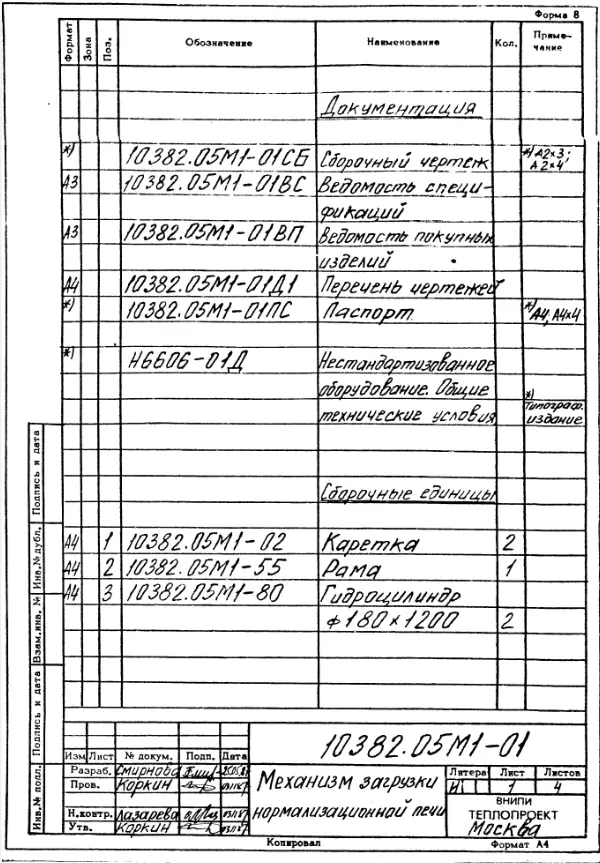 Форма 8
Формат Зона Поз. Обозначение Наименование Кол. Приме-
чание
Документация
*) 10382.05М1-01СБ Сборочный чертеж *) А2х3;
А2х4
А3 10382.05М1-01ВС Ведомость специ-
фикаций
А3 10382.05М1-01ВП Ведомость покупных
изделий
А4 10382.05М1-01Д1 Перечень чертежей
*) 10382.05М1-01ПС Паспорт *) А4, А4х4
*) Н6606-01Д Нестандартизованное
оборудование. Общие *)
технические условия Типограф.
издание
Сборочные единицы
А4 1 10382.05М1-02 Каретка 2
А4 2 10382.05М1-55 Рама 1
А4 3 10382.05М1-80 Гидроцилиндр
ф180х1200 2
Подпись и дата
Инв.№ дубл.
Взам.инв. №
Подпись и дата
Инв.№ подл.
10382.05М1-01
Изм Лист № докум. Подп. Дата
Разраб. Смирнова
Пров. Коркин
Н.контр. Лазарева
Утв. Коркин
Механизм загрузки
нормализационной печи
Литера Лист Листов
И 1 4
ВНИПИ
ТЕПЛОПРОЕКТ
Москва
Копировал Формат А4